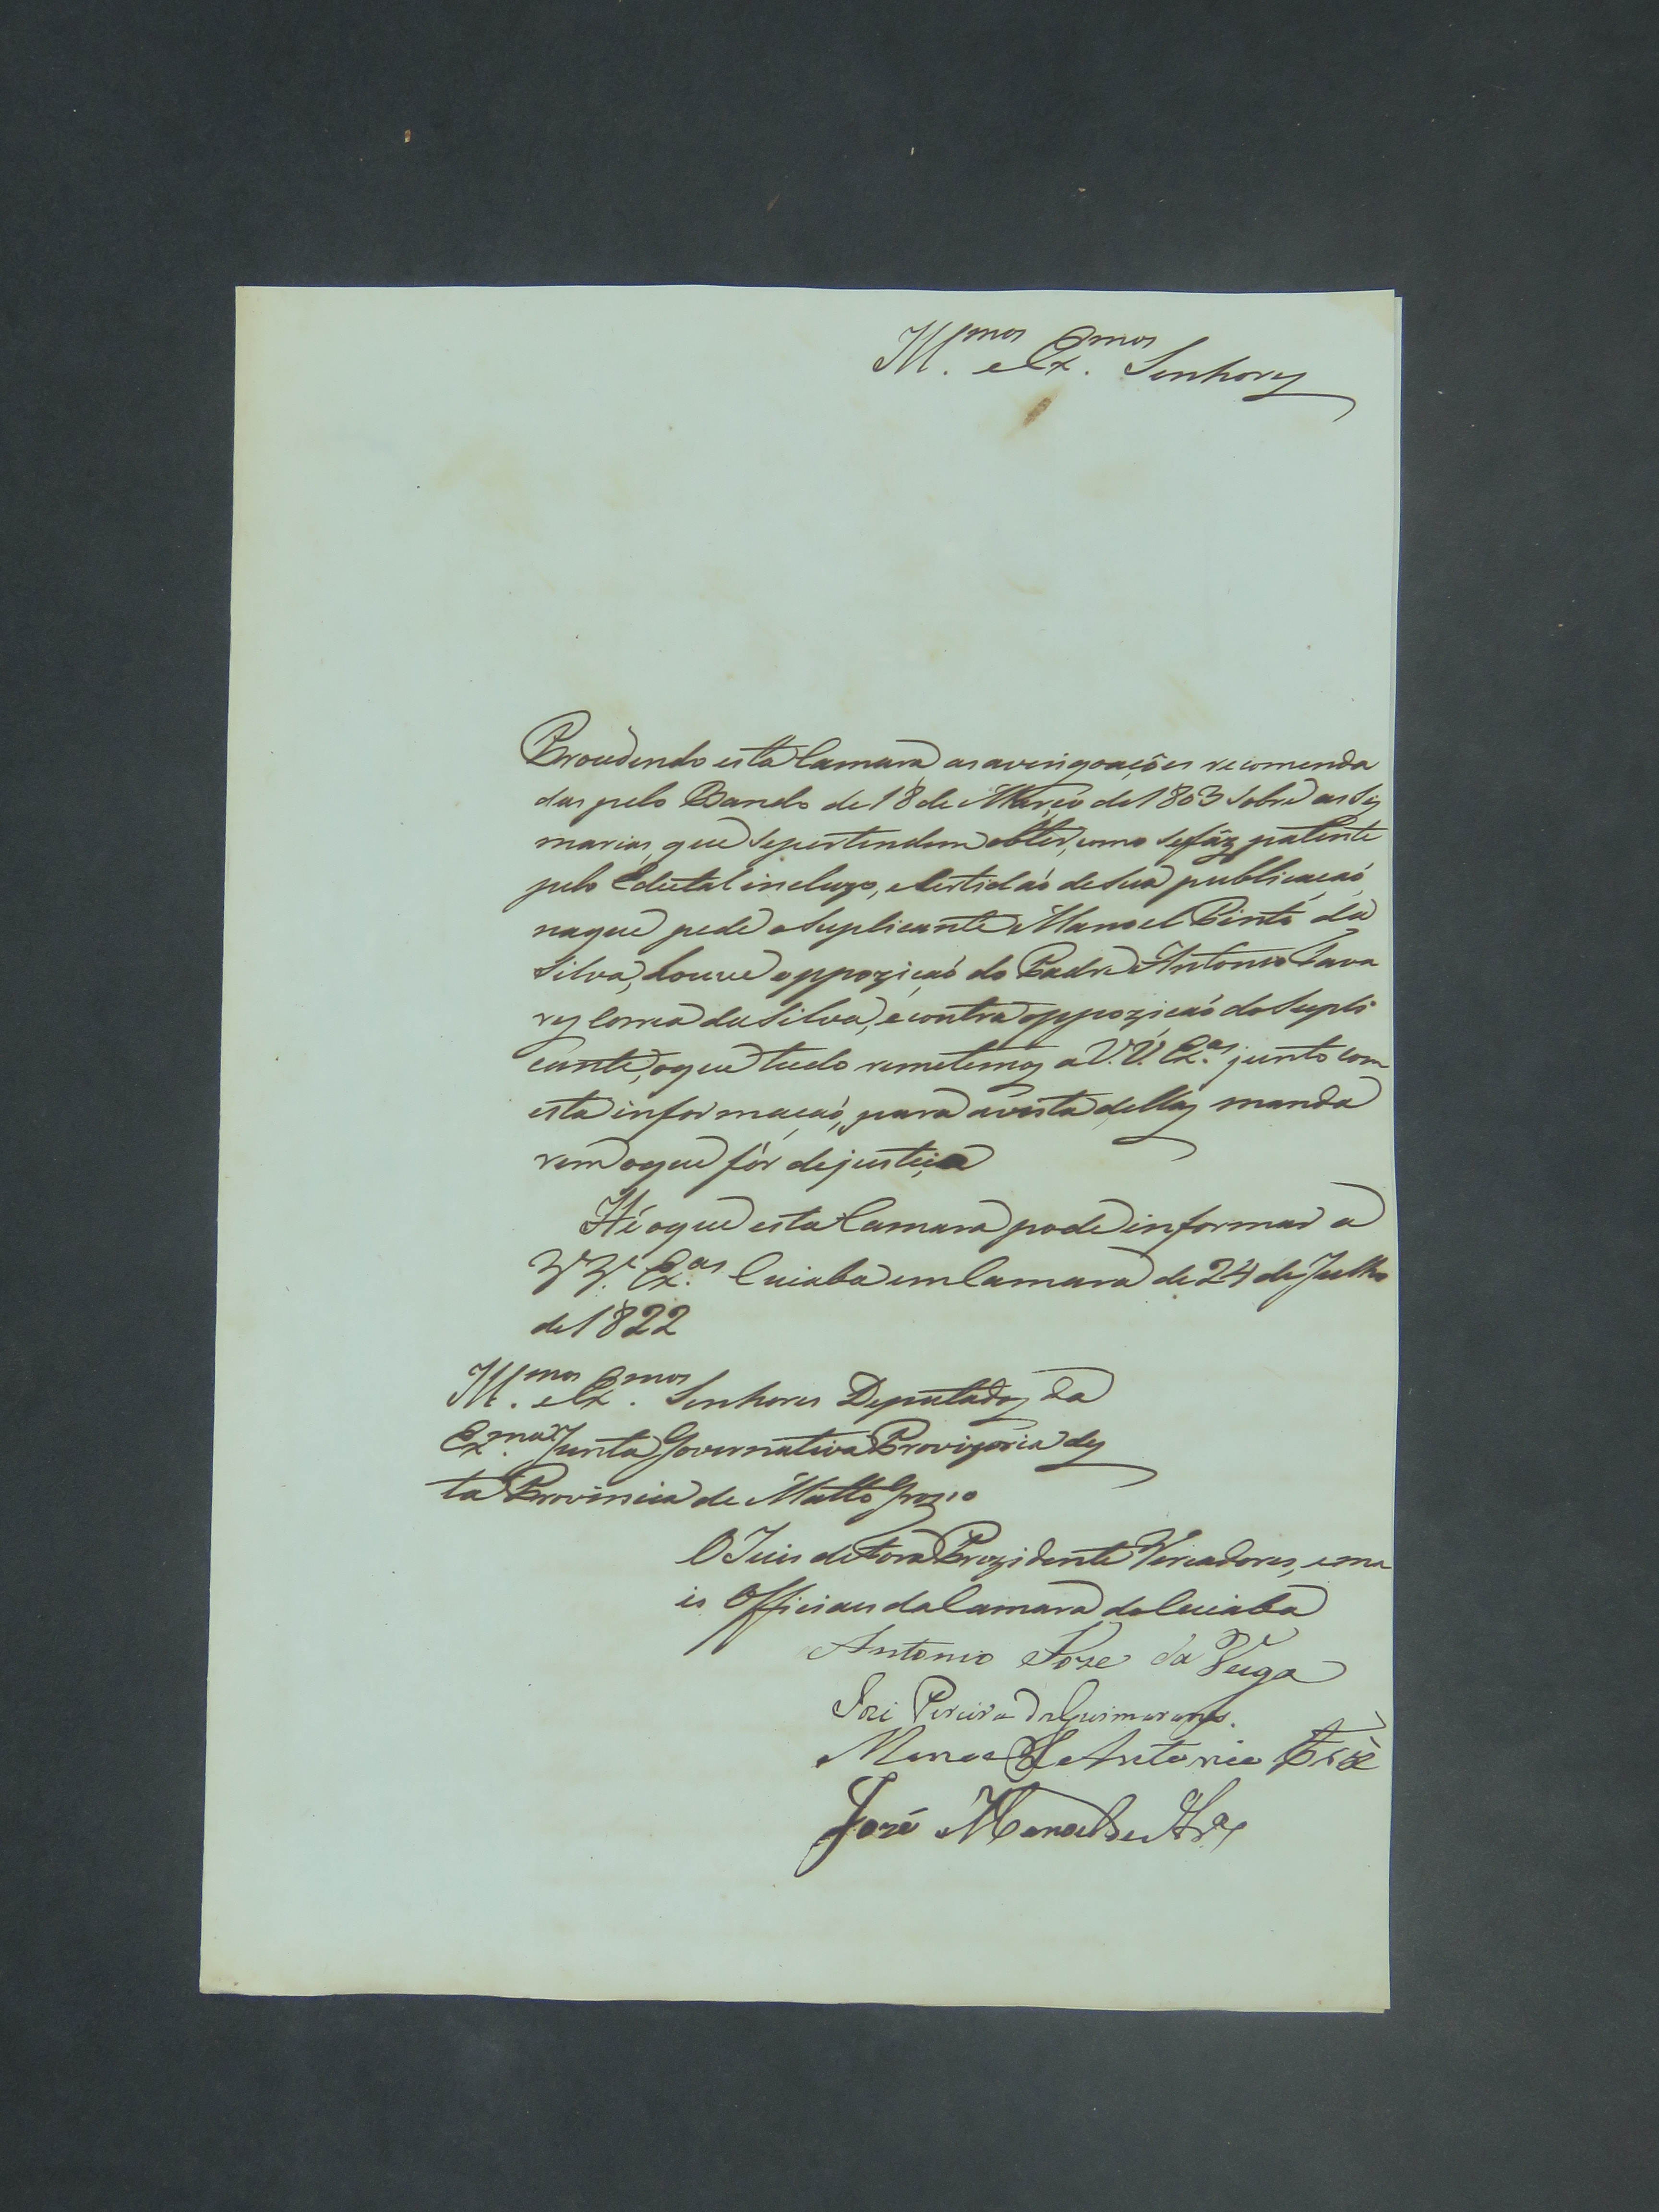 Ill.mos e Ex.mos Senhores
Procedendo esta Camara as averigoações recomenda
das pelo Bando de 18 de Março de 1803 sobre as Ses
marias, que se pertendem obter, como se fáz patente
pelo Edital incluzo, e Certidaó de sua publicaçaó
na que pede o Suplicante Manoel Pinto da
Silva, houve oppoziçaó do Padre Antonio Tava
res Correa da Silva, e contra oppoziçaó do Supli
cante, o que tudo remetemos a V.V. Ex.as junto com
esta informaçaó, para avista dellas manda
rem o que fôr de justiça
Hé o que esta Camara pode informar a
VV. Ex.as Cuiaba em Camara de 24 de Julho
de 1822
Ill.mos e Ex.mos Senhores Deputados da
Ex.ma Junta Governativa Provizoria des
ta Provincia de Matto Grosso
O Juis de Fora Prezidente Vereadores, e ma
is Officiaes da Camara do Cuiaba
Antonio Jose da Veiga
Joze Pereira Dos Guimaraes.
Manoel Antonio
José Manoel de